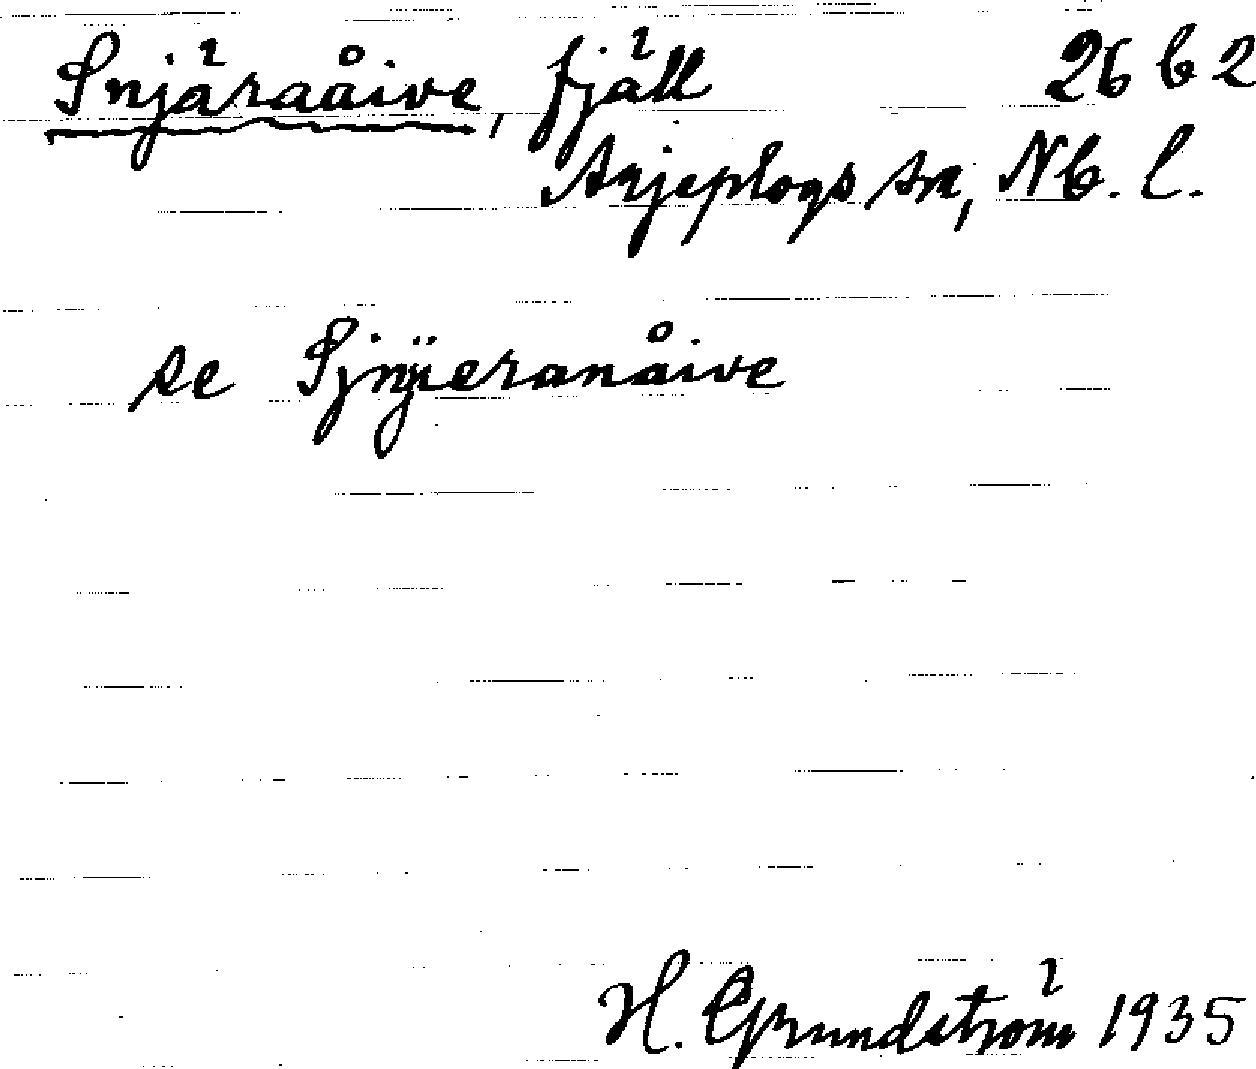 Snjäraåive, fjäll 26 b 2
Arjeplogs sn, Nb. l.
se Sjnjieranåive
H. Grundström 1935